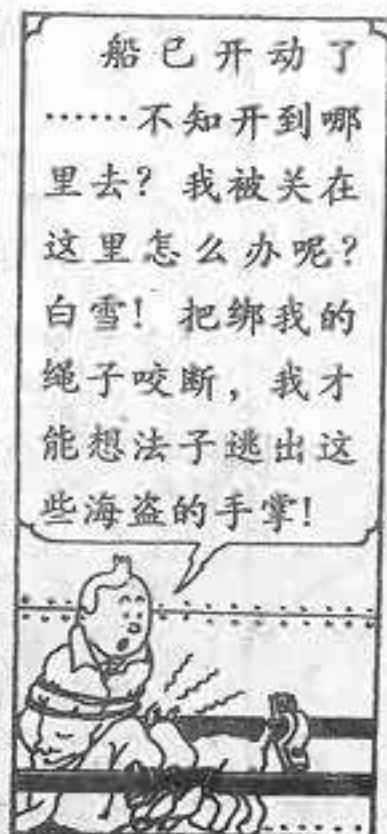 船已开动了
……不知开到哪
里去？我被关在
这里怎么办呢？
白雪！把绑我的
绳子咬断，我才
能想法子逃出这
些海盗的手掌！